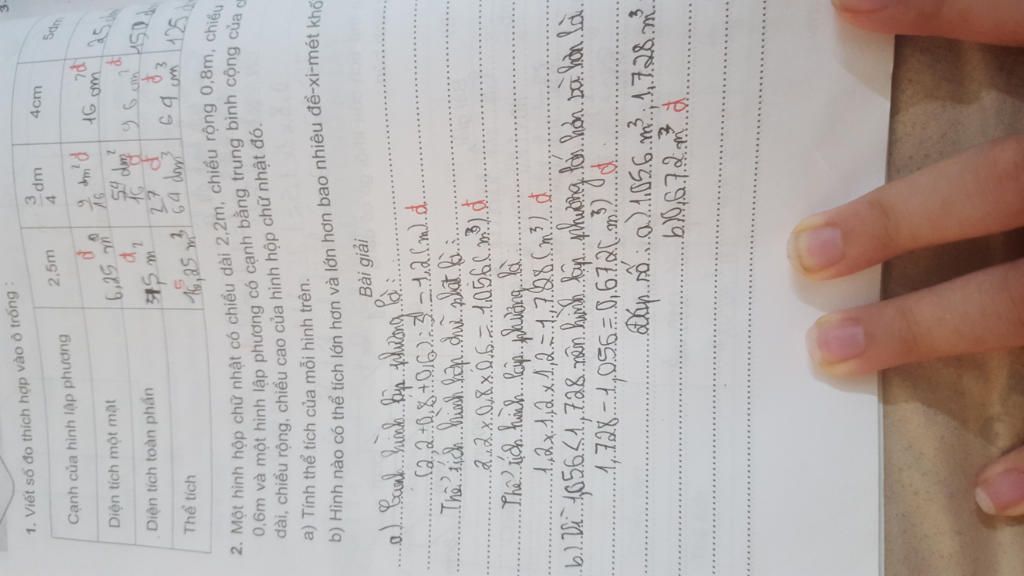 1. Viết số đo thích hợp vào ô trống :
Cạnh của hình lập phương 2,5m 3/4 dm 4cm 5dm
Diện tích một mặt 6,25 m² đ 9/16 dm² đ 16 cm² đ 25
Diện tích toàn phần m² đ 54/16 dm² đ 96 cm² đ 150
Thể tích 27/64 dm³ đ 64 cm³ đ 125
2. Một hình hộp chữ nhật có chiều dài 2,2m, chiều rộng 0,8m, chiều
0,6m và một hình lập phương có cạnh bằng trung bình cộng của
dài, chiều rộng, chiều cao của hình hộp chữ nhật đó.
a) Tính thể tích của mỗi hình trên.
b) Hình nào có thể tích lớn hơn và lớn hơn bao nhiêu đề-xi-mét khối
Bài giải
a) Cạnh hình lập phương là:
(2,2+0,8+0,6):3=1,2(m) đ
Thể tích hình hộp chữ nhật là:
2,2x0,8x0,6=1,056(m³) đ
Thể tích hình lập phương là:
1,2x1,2x1,2=1,728(m³) đ
b) Vì 1,056<1,728 nên hình lập phương lớn hơn và hơn là:
1,728-1,056=0,672(m³) đ
Đáp số: a)1,056m³; 1,728m³
b)0,672m³ đ